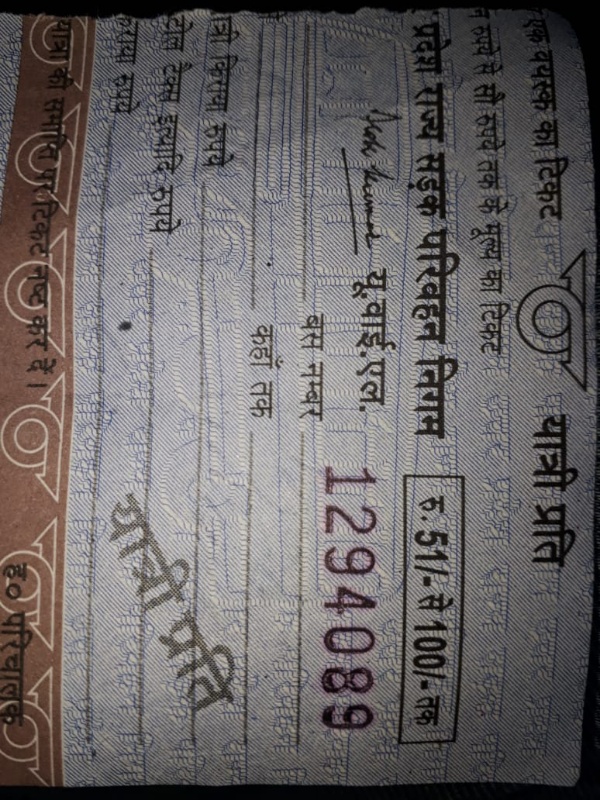 यात्री प्रति
एक वयस्क का टिकट
रुपये से सौ रुपये तक के मूल्य का टिकट
प्रदेश राज्य सड़क परिवहन निगम
रु. 51/- से 100/- तक
यू.वाई.एल. 1294089
बस नम्बर
कहाँ तक
यात्री किराया रुपये
टोल टैक्स इत्यादि रुपये
रुपये
यात्री प्रति
यात्रा की समाप्ति पर टिकट नष्ट कर दें।
ह० परिचालक